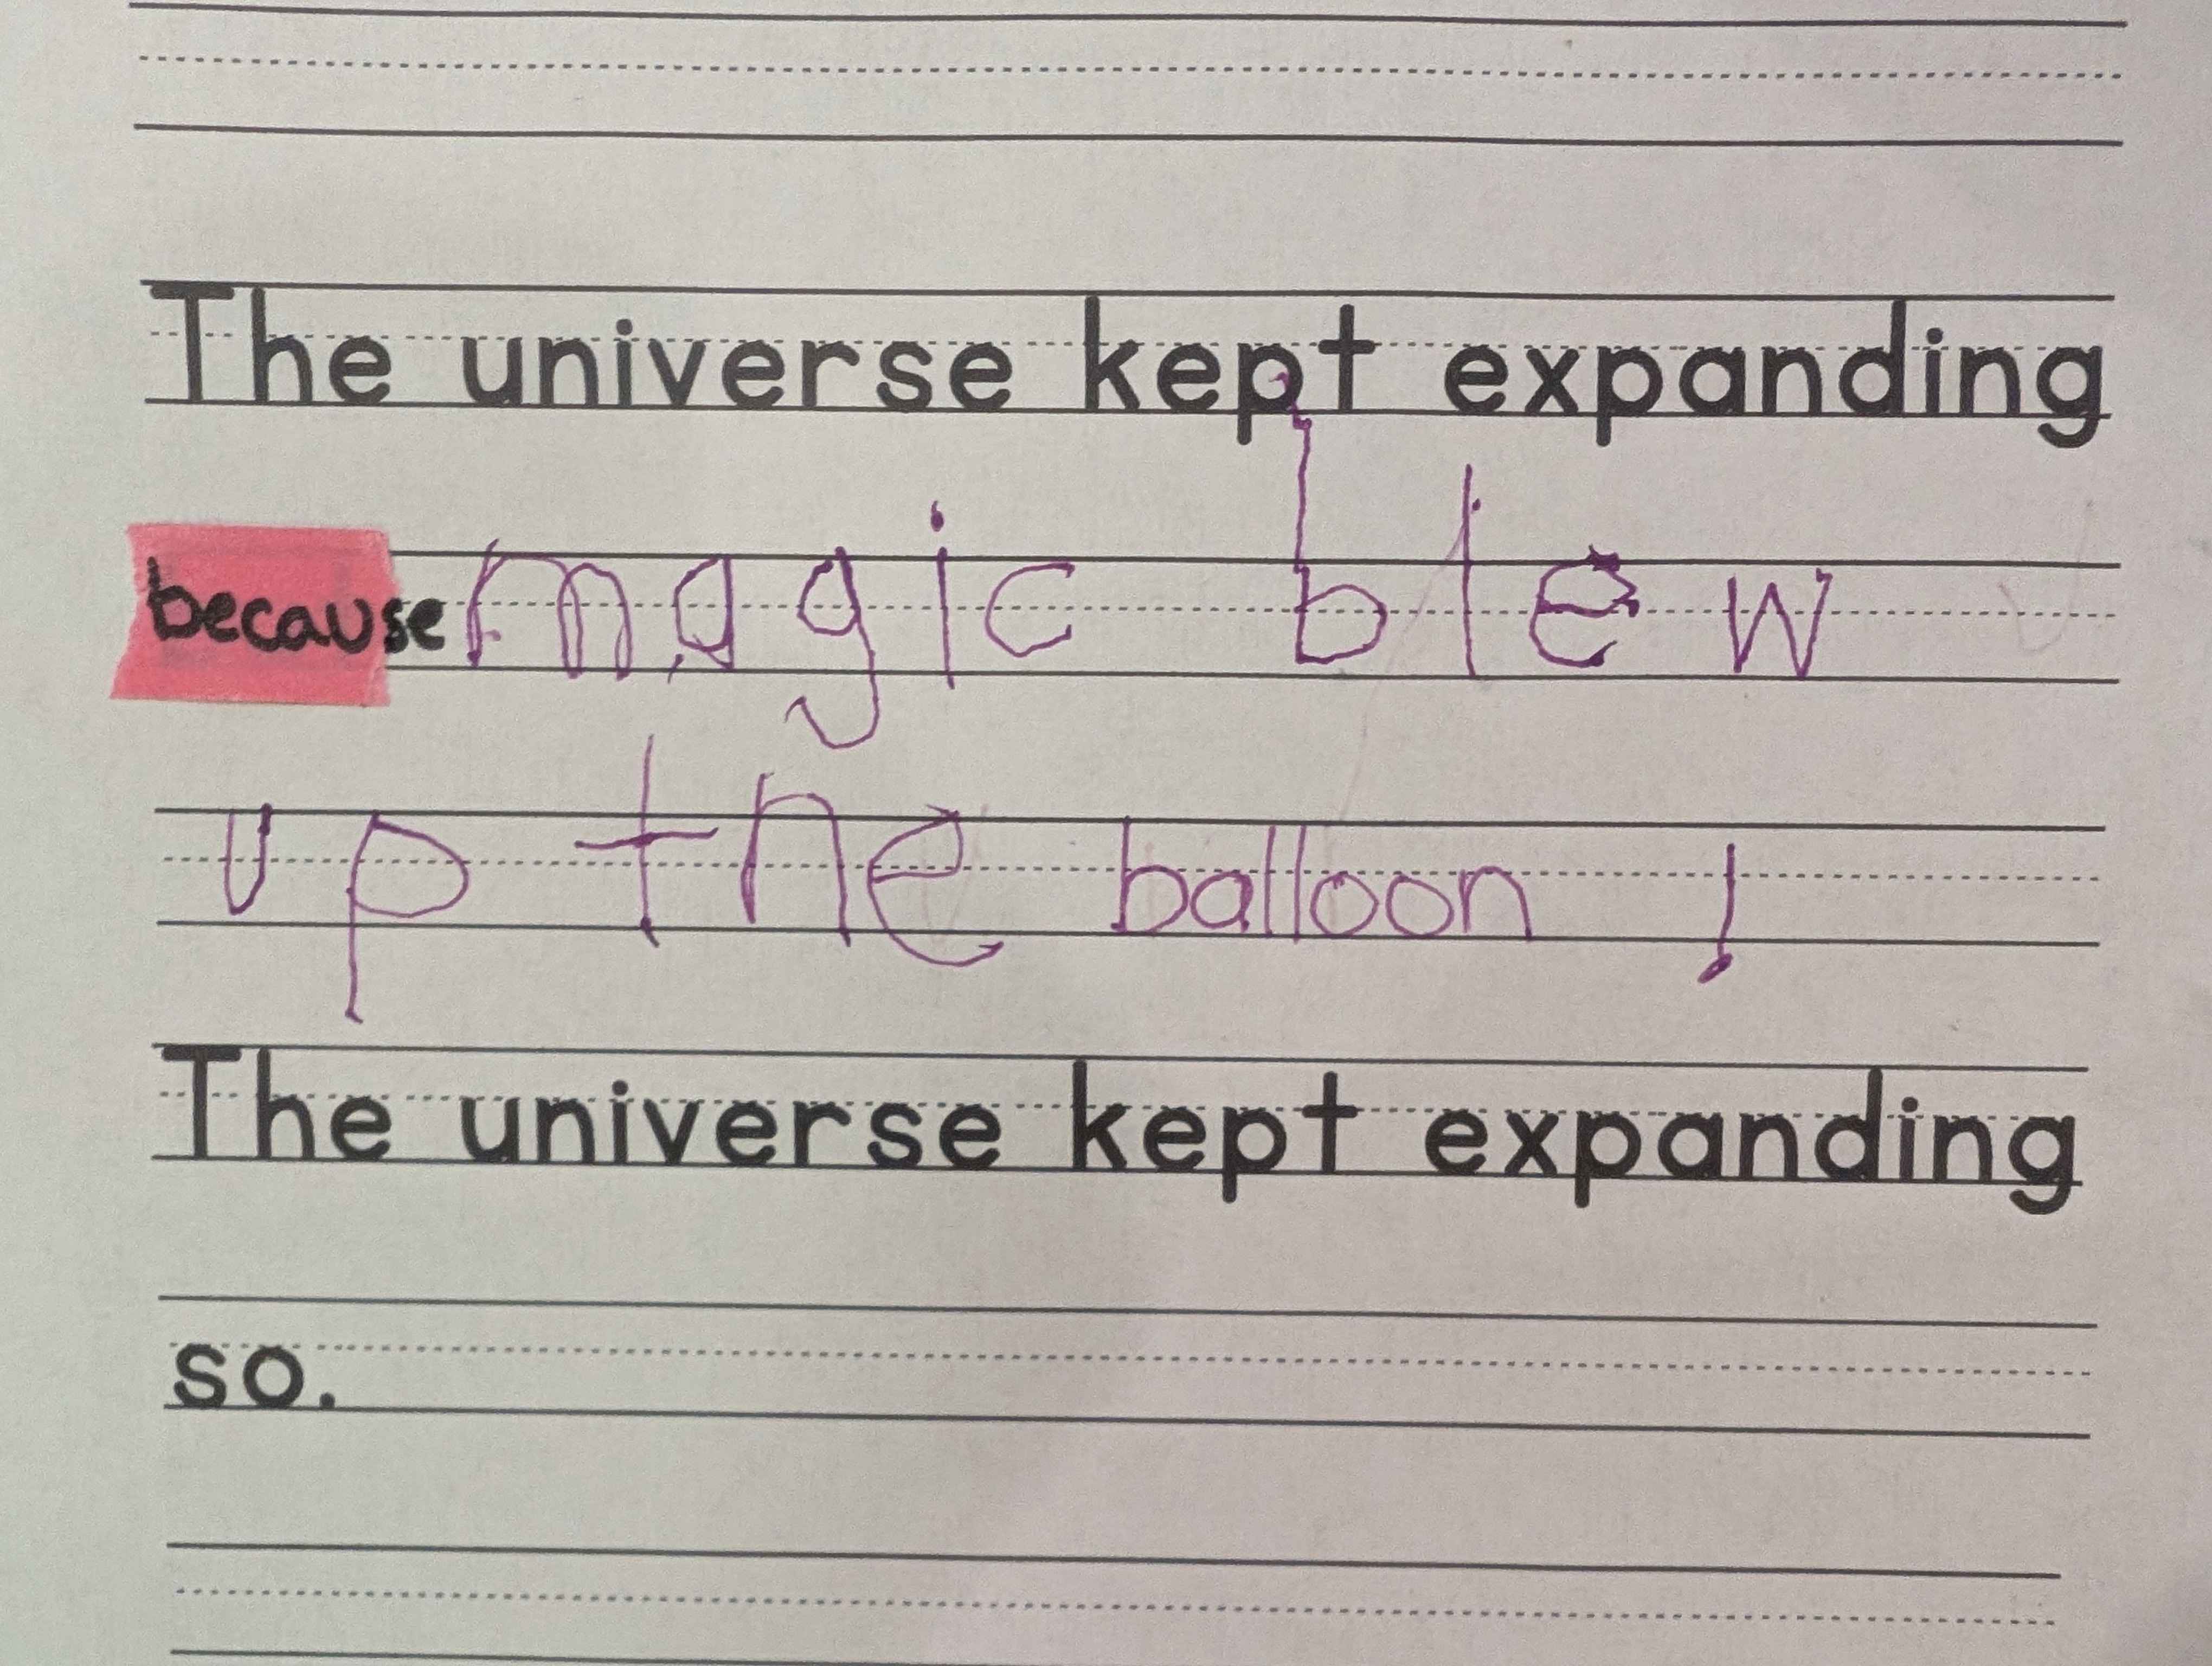 The universe kept expanding
because magic blew
up the balloon!
The universe kept expanding
so.